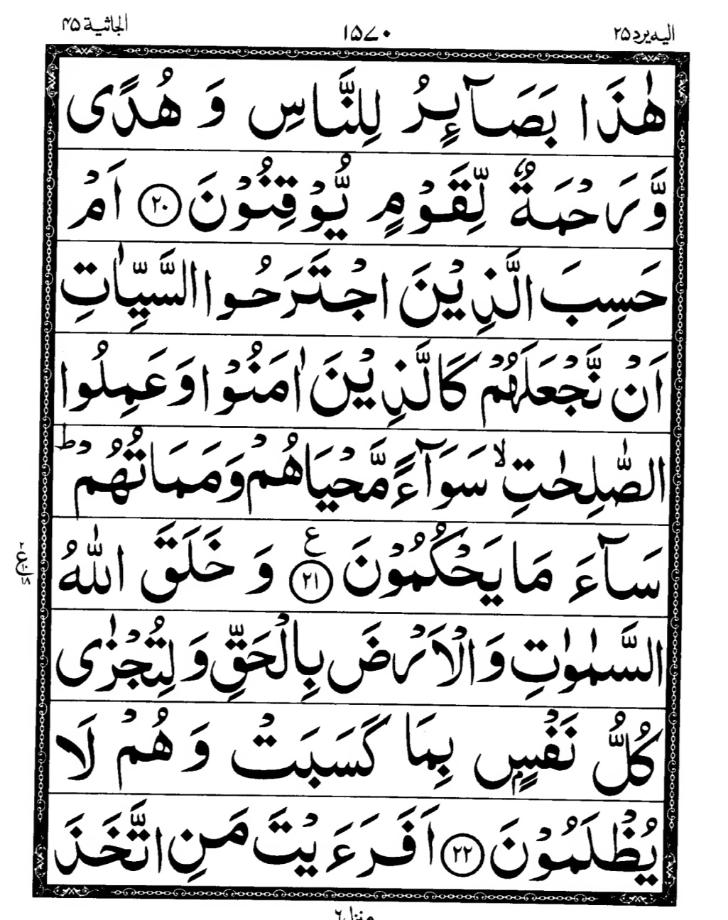 الیه یرد ۲۵ ۱۵۷۰ الجاثیة ۴۵
هٰذَا بَصَآئِرُ لِلنَّاسِ وَ هُدًی
وَّرَحْمَةٌ لِّقَوْمٍ یُّوْقِنُوْنَ ﴿۲۰﴾ اَمْ
حَسِبَ الَّذِیْنَ اجْتَرَحُوا السَّیِّاٰتِ
اَنْ نَّجْعَلَهُمْ كَالَّذِیْنَ اٰمَنُوْا وَعَمِلُوا
الصّٰلِحٰتِ ۙ سَوَآءً مَّحْیَاهُمْ وَمَمَاتُهُمْ ؕ
سَآءَ مَا یَحْكُمُوْنَ ﴿۲۱﴾ ع وَ خَلَقَ اللّٰهُ
ع ۲ ۱۸
السَّمٰوٰتِ وَالْاَرْضَ بِالْحَقِّ وَلِتُجْزٰی
كُلُّ نَفْسٍۭ بِمَا كَسَبَتْ وَ هُمْ لَا
یُظْلَمُوْنَ ﴿۲۲﴾ اَفَرَءَیْتَ مَنِ اتَّخَذَ
منزل ۶